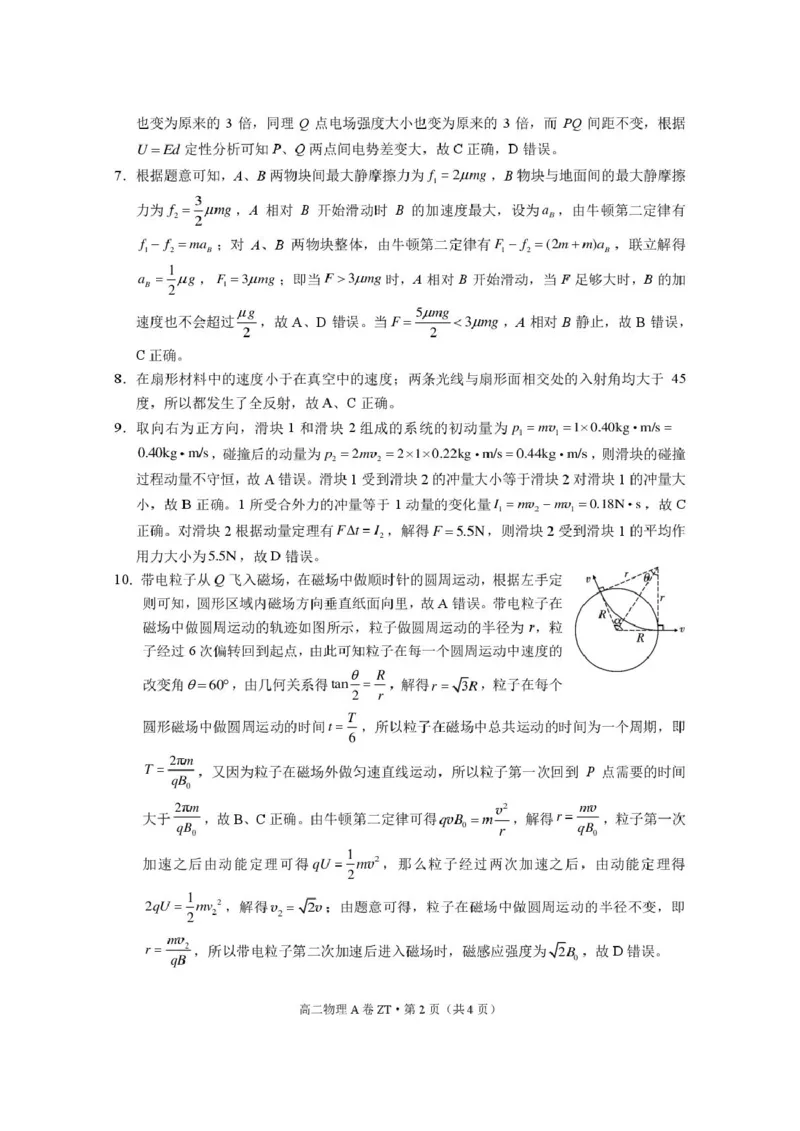 也变为原来的 3 倍，同理 Q 点电场强度大小也变为原来的 3 倍，而 PQ 间距不变，根据
U=Ed 定性分析可知 P、Q 两点间电势差变大，故 C 正确，D 错误。
7．根据题意可知，A、B 两物块间最大静摩擦力为 f₁=2μmg，B 物块与地面间的最大静摩擦
力为 f₂=3/2 μmg，A 相对 B 开始滑动时 B 的加速度最大，设为 a_B，由牛顿第二定律有
f₁−f₂=ma_B；对 A、B 两物块整体，由牛顿第二定律有 F₁−f₂=(2m+m)a_B，联立解得
a_B=1/2 μg，F₁=3μmg；即当 F>3μmg 时，A 相对 B 开始滑动，当 F 足够大时，B 的加
速度也不会超过 μg/2，故 A、D 错误。当 F=5μmg/2<3μmg，A 相对 B 静止，故 B 错误，
C 正确。
8．在扇形材料中的速度小于在真空中的速度；两条光线与扇形面相交处的入射角均大于 45
度，所以都发生了全反射，故 A、C 正确。
9．取向右为正方向，滑块 1 和滑块 2 组成的系统的初动量为 p₁=mv₁=1×0.40kg•m/s=
0.40kg•m/s，碰撞后的动量为 p₂=2mv₂=2×1×0.22kg•m/s=0.44kg•m/s，则滑块的碰撞
过程动量不守恒，故 A 错误。滑块 1 受到滑块 2 的冲量大小等于滑块 2 对滑块 1 的冲量大
小，故 B 正确。1 所受合外力的冲量等于 1 动量的变化量 I₁=mv₂−mv₁=0.18N•s，故 C
正确。对滑块 2 根据动量定理有 FΔt=I₂，解得 F=5.5N，则滑块 2 受到滑块 1 的平均作
用力大小为 5.5N，故 D 错误。
10．带电粒子从 Q 飞入磁场，在磁场中做顺时针的圆周运动，根据左手定
则可知，圆形区域内磁场方向垂直纸面向里，故 A 错误。带电粒子在
磁场中做圆周运动的轨迹如图所示，粒子做圆周运动的半径为 r，粒
子经过 6 次偏转回到起点，由此可知粒子在每一个圆周运动中速度的
改变角 θ=60°，由几何关系得 tan θ/2=R/r，解得 r=√3R，粒子在每个
圆形磁场中做圆周运动的时间 t=T/6，所以粒子在磁场中总共运动的时间为一个周期，即
T=2πm/qB₀，又因为粒子在磁场外做匀速直线运动，所以粒子第一次回到 P 点需要的时间
大于 2πm/qB₀，故 B、C 正确。由牛顿第二定律可得 qvB₀=m v²/r，解得 r=mv/qB₀，粒子第一次
加速之后由动能定理可得 qU=1/2 mv²，那么粒子经过两次加速之后，由动能定理得
2qU=1/2 mv₂²，解得 v₂=√2v；由题意可得，粒子在磁场中做圆周运动的半径不变，即
r=mv₂/qB，所以带电粒子第二次加速后进入磁场时，磁感应强度为 √2B₀，故 D 错误。
v
r
θ
r
R
α
R
v
高二物理 A 卷 ZT·第 2 页（共 4 页）